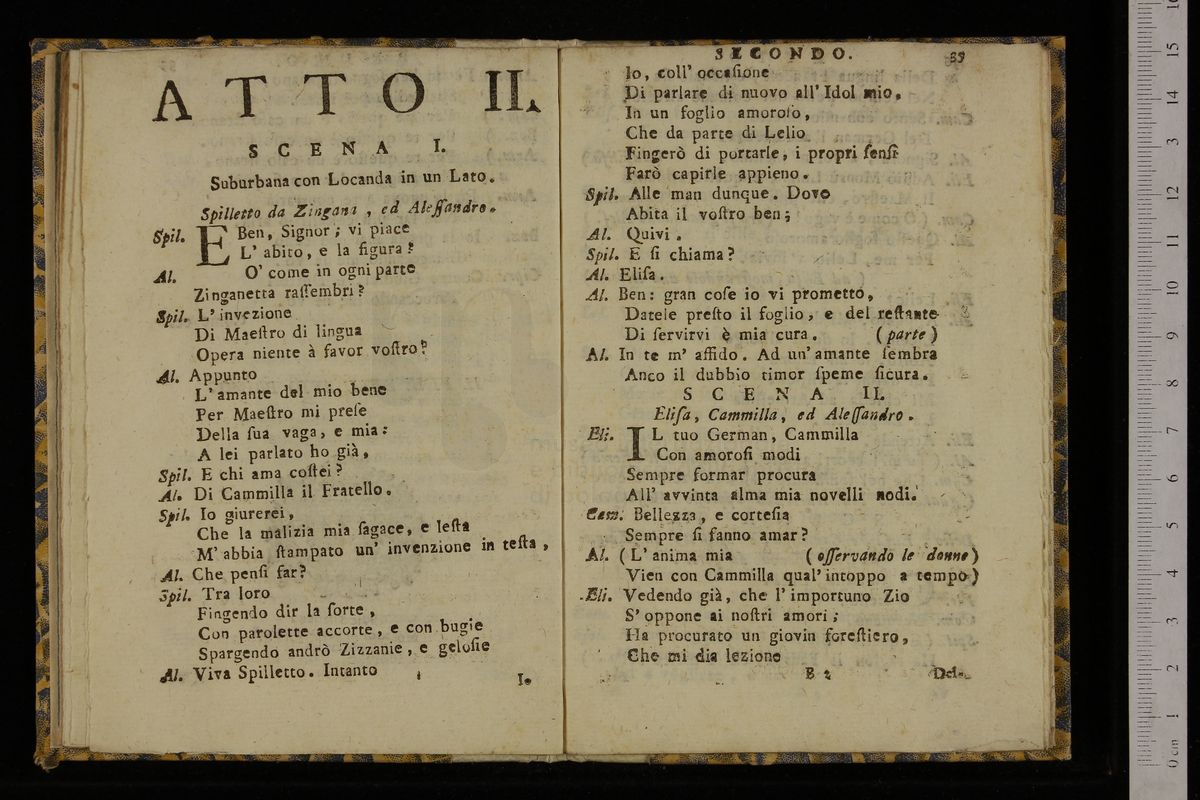 ATTO II.
SCENA I.
Suburbana con Locanda in un Lato.
Spilletto da Zingana, ed Aleſſandro.
Spil. E Ben, Signor; vi piace
L' abito, e la figura?
Al. O' come in ogni parte
Zinganetta raſſembri?
Spil. L' invezione
Di Maeſtro di lingua
Opera niente à favor voſtro?
Al. Appunto
L' amante del mio bene
Per Maeſtro mi preſe
Della ſua vaga, e mia:
A lei parlato ho già,
Spil. E chi ama coſtei?
Al. Di Cammilla il Fratello.
Spil. Io giurerei,
Che la malizia mia ſagace, e leſta
M' abbia ſtampato un' invenzione in teſta,
Al. Che penſi far?
Spil. Tra loro
Fingendo dir la ſorte,
Con parolette accorte, e con bugie
Spargendo andrò Zizzanie, e geloſie
Al. Viva Spilletto. Intanto
Io
SECONDO. 39
Io, coll' occaſione
Di parlare di nuovo all' Idol mio,
In un foglio amoroſo,
Che da parte di Lelio
Fingerò di portarle, i propri ſenſi
Farò capirle appieno.
Spil. Alle man dunque. Dove
Abita il voſtro ben;
Al. Quivi.
Spil. E ſi chiama?
Al. Eliſa.
Al. Ben: gran coſe io vi prometto,
Datele preſto il foglio, e del reſtante
Di ſervirvi è mia cura. (parte)
Al. In te m' affido. Ad un' amante ſembra
Anco il dubbio timor ſpeme ſicura.
SCENA II.
Eliſa, Cammilla, ed Aleſſandro.
Eli. IL tuo German, Cammilla
Con amoroſi modi
Sempre formar procura
All' avvinta alma mia novelli nodi.
Cam. Bellezza, e corteſia
Sempre ſi fanno amar?
Al. (L' anima mia (oſſervando le donne)
Vien con Cammilla qual' intoppo a tempo)
Eli. Vedendo già, che l' importuno Zio
S' oppone ai noſtri amori;
Ha procurato un giovin foreſtiero,
Che mi dia lezione
B 2 Del-